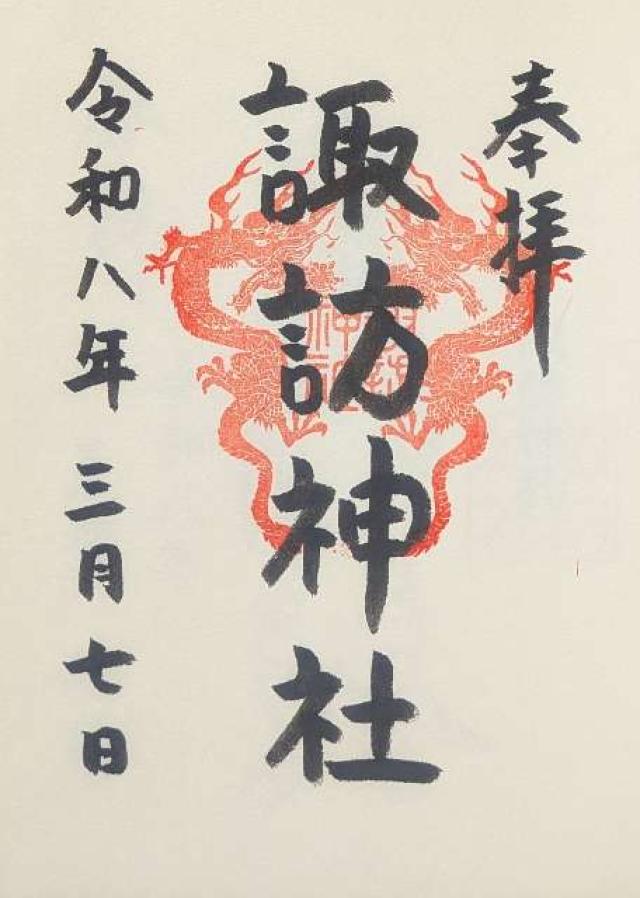 奉拝
諏訪神社
令和八年三月七日